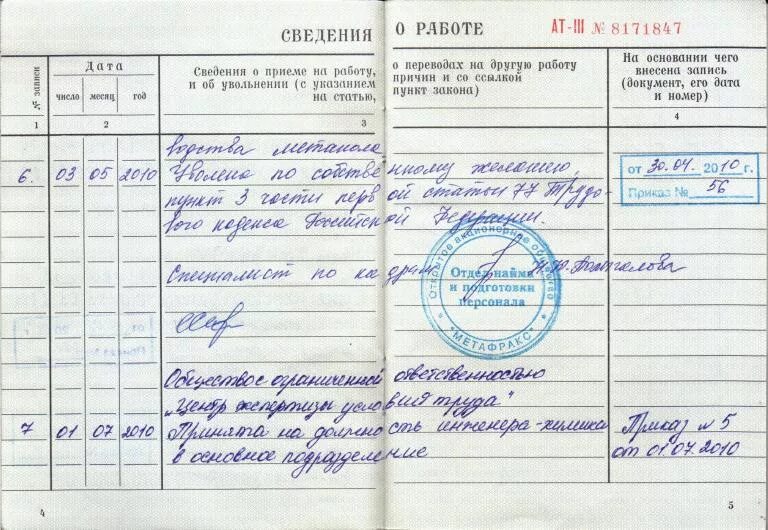 СВЕДЕНИЯ О РАБОТЕ АТ-III № 8171847
№ записи Дата Сведения о приеме на работу, о переводах на другую работу На основании чего
число месяц год и об увольнении (с указанием причин и со ссылкой внесена запись
на статью, пункт закона) (документ, его дата
и номер)
1 2 3 4
водства метанола
6. 03 05 2010 Уволена по собственному желанию, от 30.04 2010 г.
пункт 3 части первой статьи 77 Трудо- Приказ № 56
вого кодекса Российской Федерации.
Специалист по кадрам
Открытое акционерное общество
Отдел найма
и подготовки
персонала
"МЕТАФРАКС"
Общество с ограниченной ответственностью
"Центр экспертизы условий труда"
7 01 07 2010 Принята на должность инженера-химика Приказ № 5
в основное подразделение от 01.07.2010
4 5